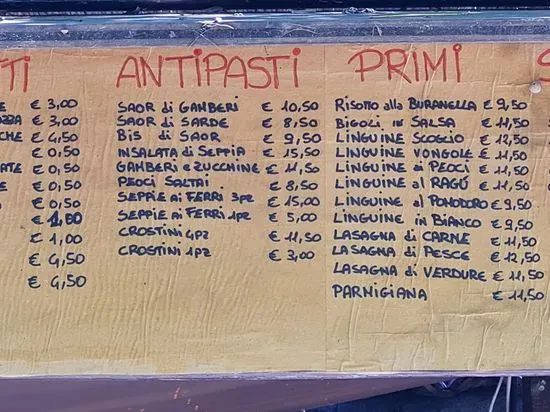 TI
€ 3,00
€ 3,00
€ 4,50
€ 0,50
€ 0,50
€ 0,50
€ 1,00
€ 4,50
€ 4,50
ANTIPASTI
SAOR di GAMBERI € 10,50
SAOR di SARDE € 8,50
BIS di SAOR € 9,50
INSALATA di SEPPIA € 15,50
GAMBERI e ZUCCHINE € 11,50
PEOCI SALTAI € 8,50
SEPPIE AI FERRI 3PZ € 15,00
SEPPIE AI FERRI 1PZ € 5,00
CROSTINI 4PZ € 11,50
CROSTINI 1PZ € 3,00
PRIMI
RISOTTO alla BURANELLA € 9,50
BIGOLI in SALSA € 11,50
LINGUINE SCOGLIO € 12,50
LINGUINE VONGOLE € 11,50
LINGUINE di PEOCI € 11,50
LINGUINE al RAGÚ € 11,50
LINGUINE al POMODORO € 9,50
LINGUINE in BIANCO € 9,50
LASAGNA di CARNE € 11,50
LASAGNA di PESCE € 12,50
LASAGNA di VERDURE € 11,50
PARMIGIANA € 11,50